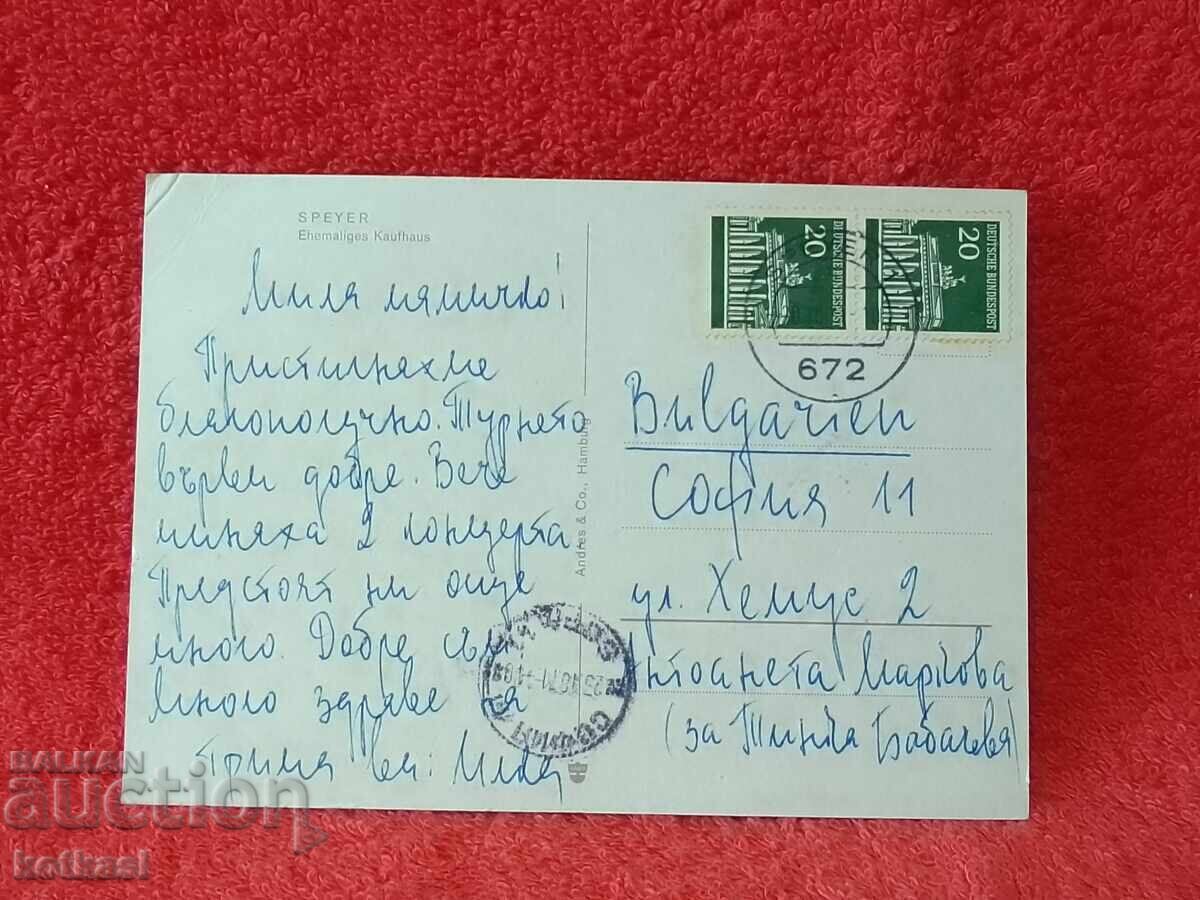 SPEYER
Ehemaliges Kaufhaus
Мила мамичко!
Пристигнахме
благополучно. Турнето
върви добре. Вече
минаха 2 концерта
Предстоят ни още
много. Добре съм
Много здраве на
Andres & Co., Hamburg
DEUTSCHE BUNDESPOST
20
DEUTSCHE BUNDESPOST
20
672
Bulgarien
София 11
ул. Хемус 2
Антоанета
(за
СОФИЯ
BALKAN
auction
kotkasl